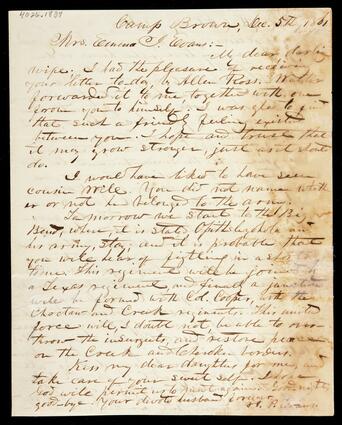 4026.1837
Camp Brown, Dec. 5th, 1861
Mrs. Emma J. Evans:-
My dear darling
wife. I had the pleasure to receive
your letter to-day by Allen Ross. Walter
forwarded it to me together with one
from you to himself. I was glad to find
that such a friendly feeling existed
between you. I hope and trust that
it may grow stronger, just as it should
do.
I would have liked to have seen
cousin Will. You did not name wheth
er or not he belonged to the army.
Tomorrow we start to the Big
Bend, where, it is stated Opothleyohola and
his army, stay, and it is probable that
you will hear of fighting in a short
time. This regiment will be joined
a Texas regiment, and finally a junction
will be formed with Col. Cooper, with the
Choctaw and Creek regiments. This united
force will, I doubt not, be able to over
throw the insurgents, and restore peace
on the Creek and Cherokee borders.
Kiss my dear daughters for me, and
take care of your sweet self.
God will permit us to meet again. Good night,
good-bye. Your devoted husband forever